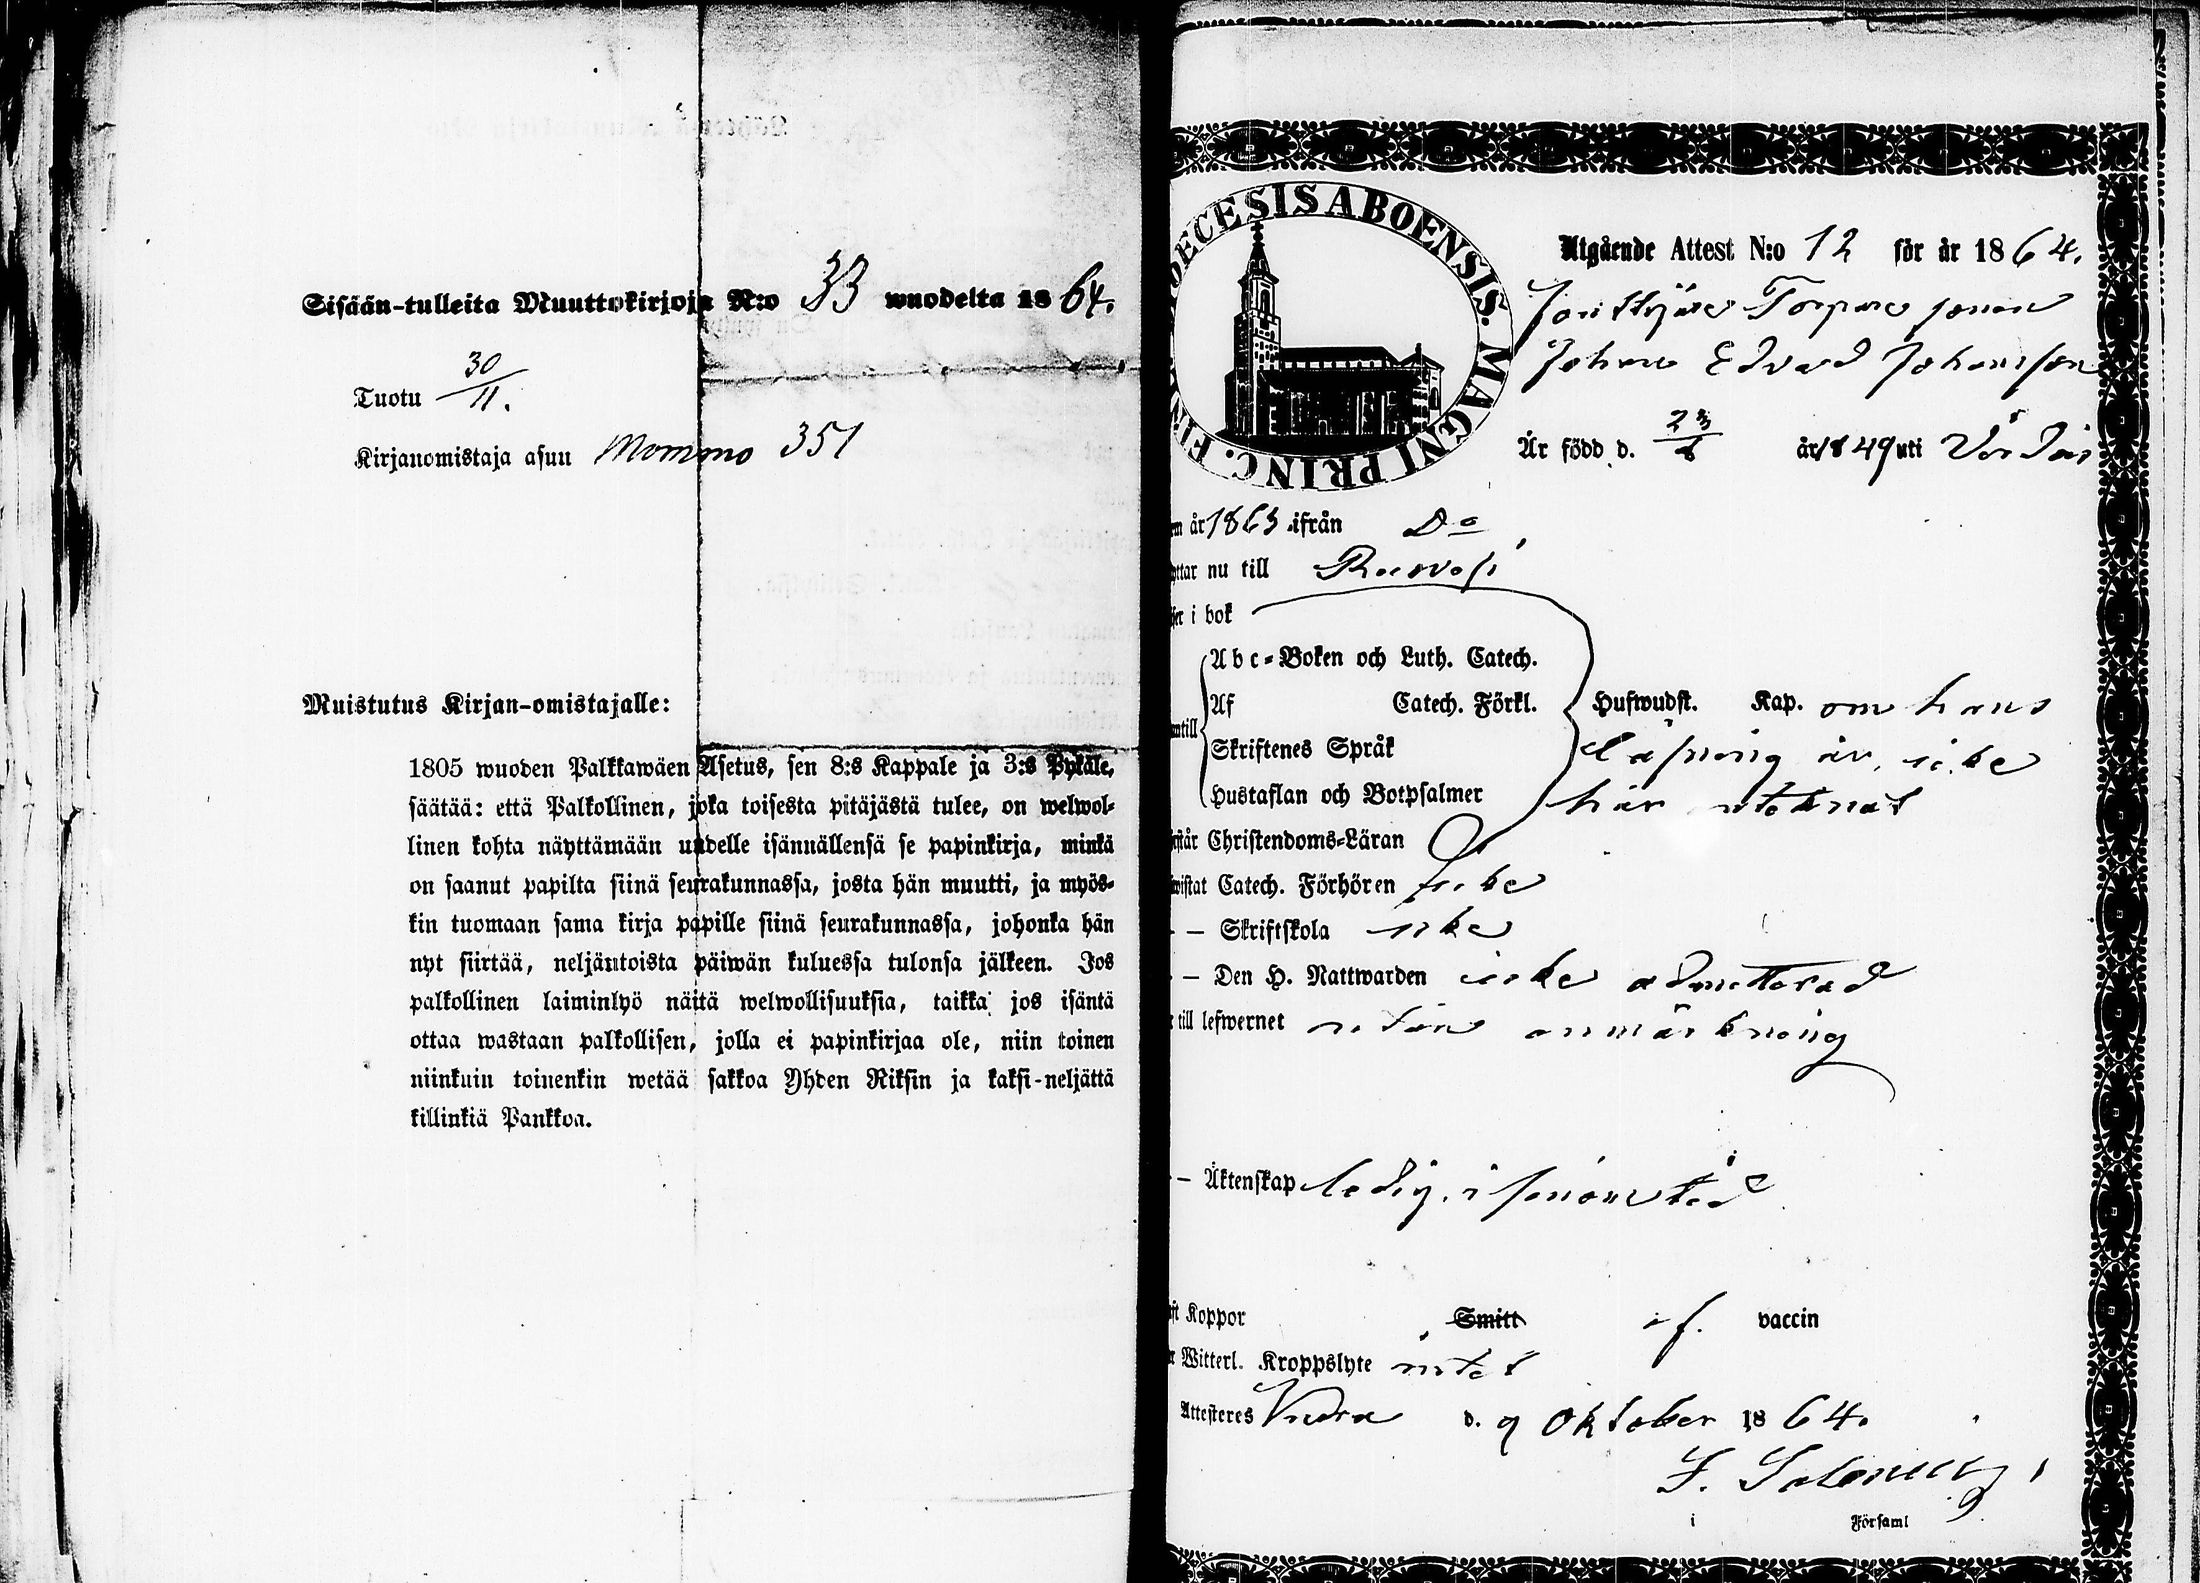 Sisään-tulleita Muuttokirjoja N:o 33 wuodelta 1864.
Tuotu 30/11.
Kirjanomistaja asuu Mommo 351
Muistutus Kirjan-omistajalle:
1805 wuoden Palkkawäen Asetus, sen 8:s Kappale ja 3:s Pykäle,
säätää: että Palkollinen, joka toisesta pitäjästä tulee, on welwol-
linen kohta näyttämään uudelle isännällensä se papinkirja, minkä
on saanut papilta siinä seurakunnassa, josta hän muutti, ja myös-
kin tuomaan sama kirja papille siinä seurakunnassa, johonka hän
nyt siirtää, neljäntoista päiwän kuluessa tulonsa jälkeen. Jos
palkollinen laiminlyö näitä welwollisuuksia, taikka jos isäntä
ottaa wastaan palkollisen, jolla ei papinkirjaa ole, niin toinen
niinkuin toinenkin wetää sakkoa Yhden Riksin ja kaksi-neljättä
killinkiä Pankkoa.
DIOECESIS ABOENSIS. MAGNI PRINC. FINL
Utgående Attest N:o 12 för år 1864.
Torpare sonen
Johan Edvard Johansson
Är född d. 23/6 år 1849 uti
år 1863 ifrån Do
nu till
i bok
Abc-Boken och Luth. Catech.
Af Catech. Förkl. Hufwudst. Kap. om hans
Skriftenes Språk läsning är icke
Hustaflan och Botpsalmer här antecknat
Christendoms-Läran
Catech. Förhören icke
- - Skriftskola icke
- - Den H. Nattwarden icke admitterad
till lefwernet utan anmärkning
- - Äktenskap ledig.
Koppor Smitt vaccin
Witterl. Kroppslyte intet
Attesteres d. 9 Oktober 1864.
i Församl